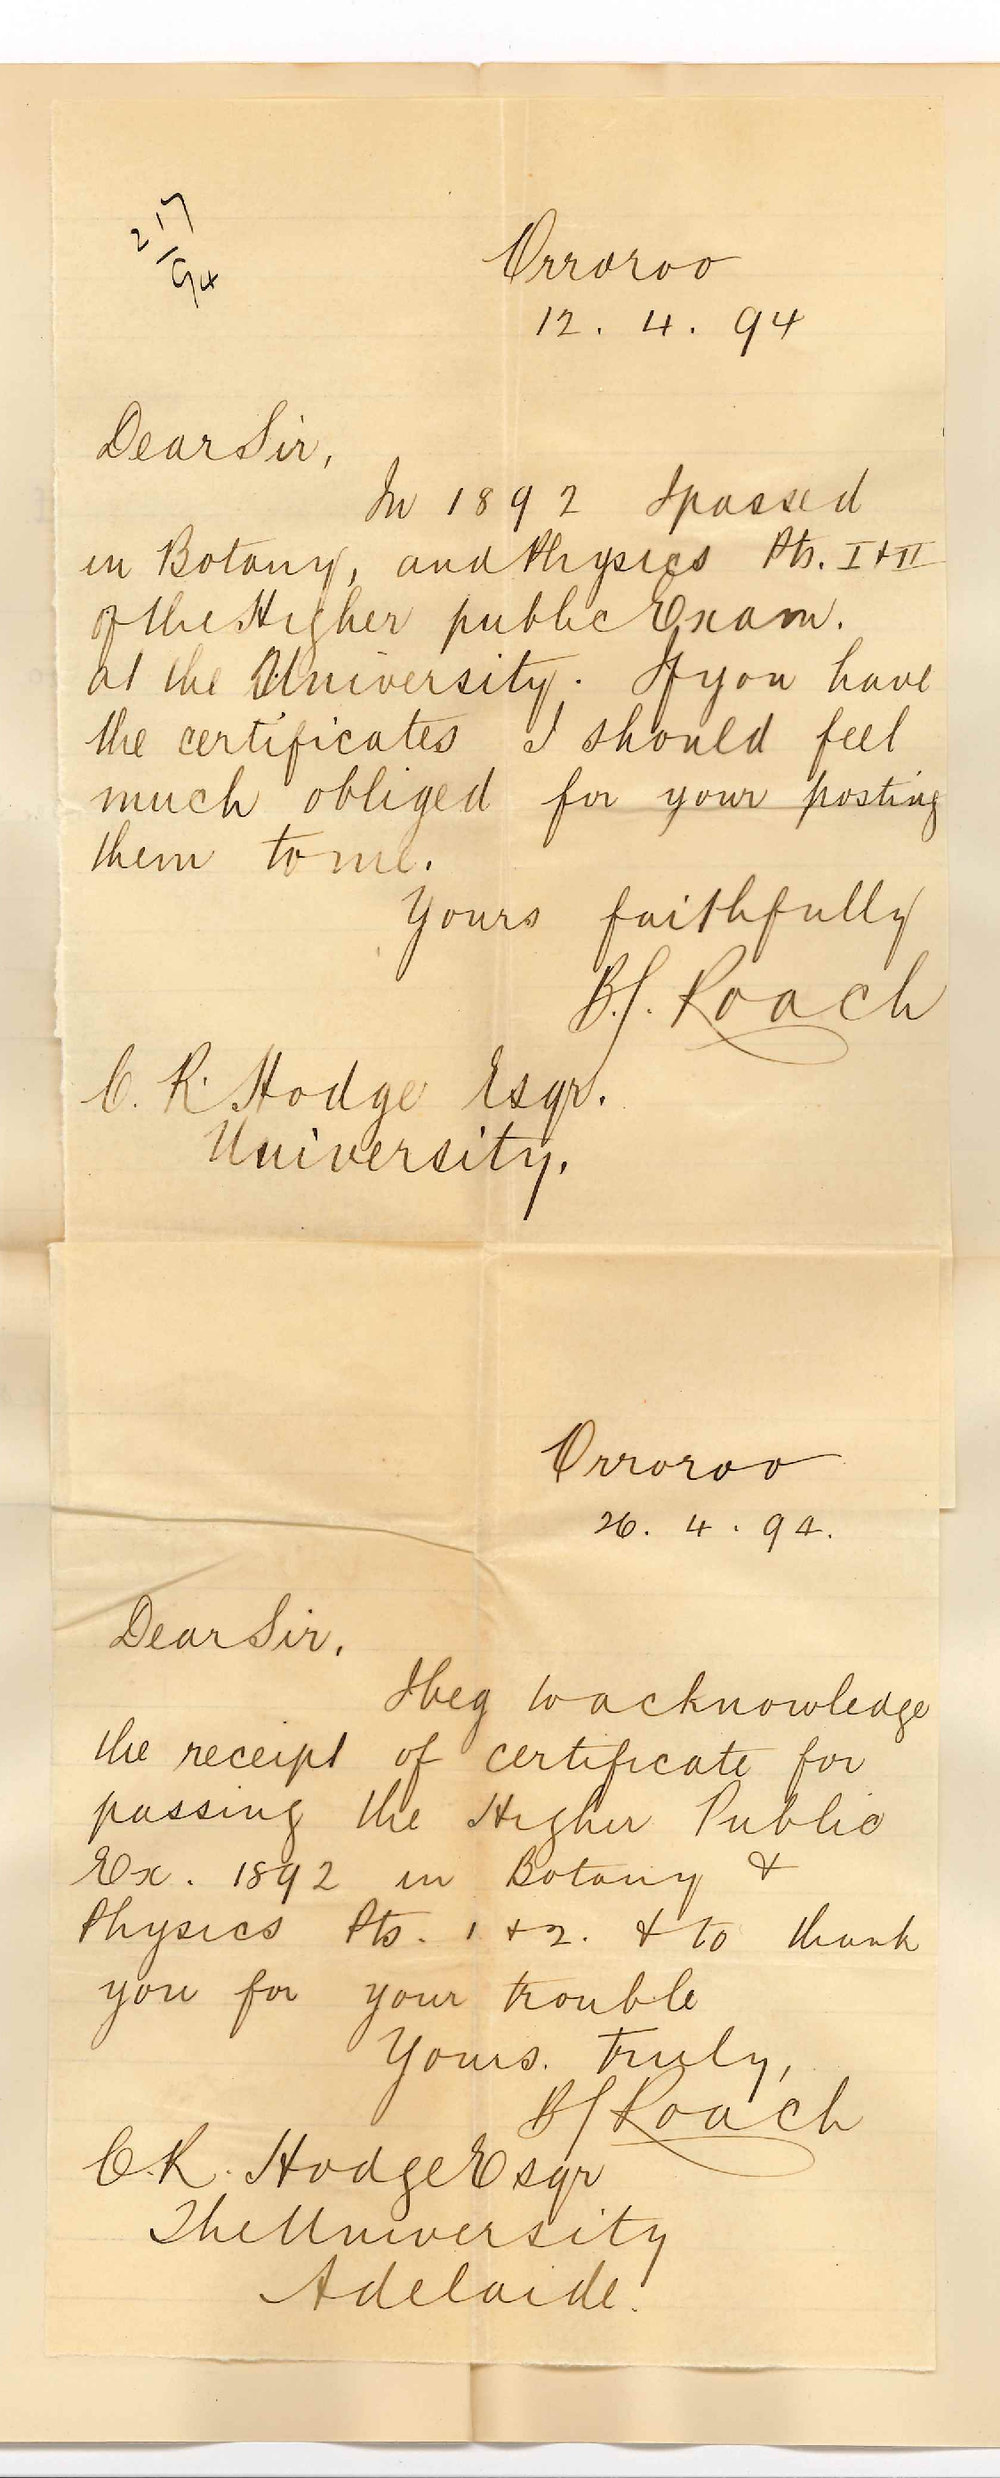 217
94
Orroroo
12. 4. 94
Dear Sir,
In 1892 I passed
in Botany, and Physics Pts. I & II
of the Higher public Exam.
at the University. If you have
the certificates I should feel
much obliged for your posting
them to me.
Yours faithfully
B.J. Roach
C. R. Hodge Esqr.
University.
Orroroo
26. 4. 94.
Dear Sir,
I beg to acknowledge
the receipt of certificate for
passing the Higher Public
Ex. 1892 in Botany &
Physics Pts. 1 & 2. & to thank
you for your trouble
Yours. truly,
BJ Roach
C.R. Hodge Esqr
The University
Adelaide.